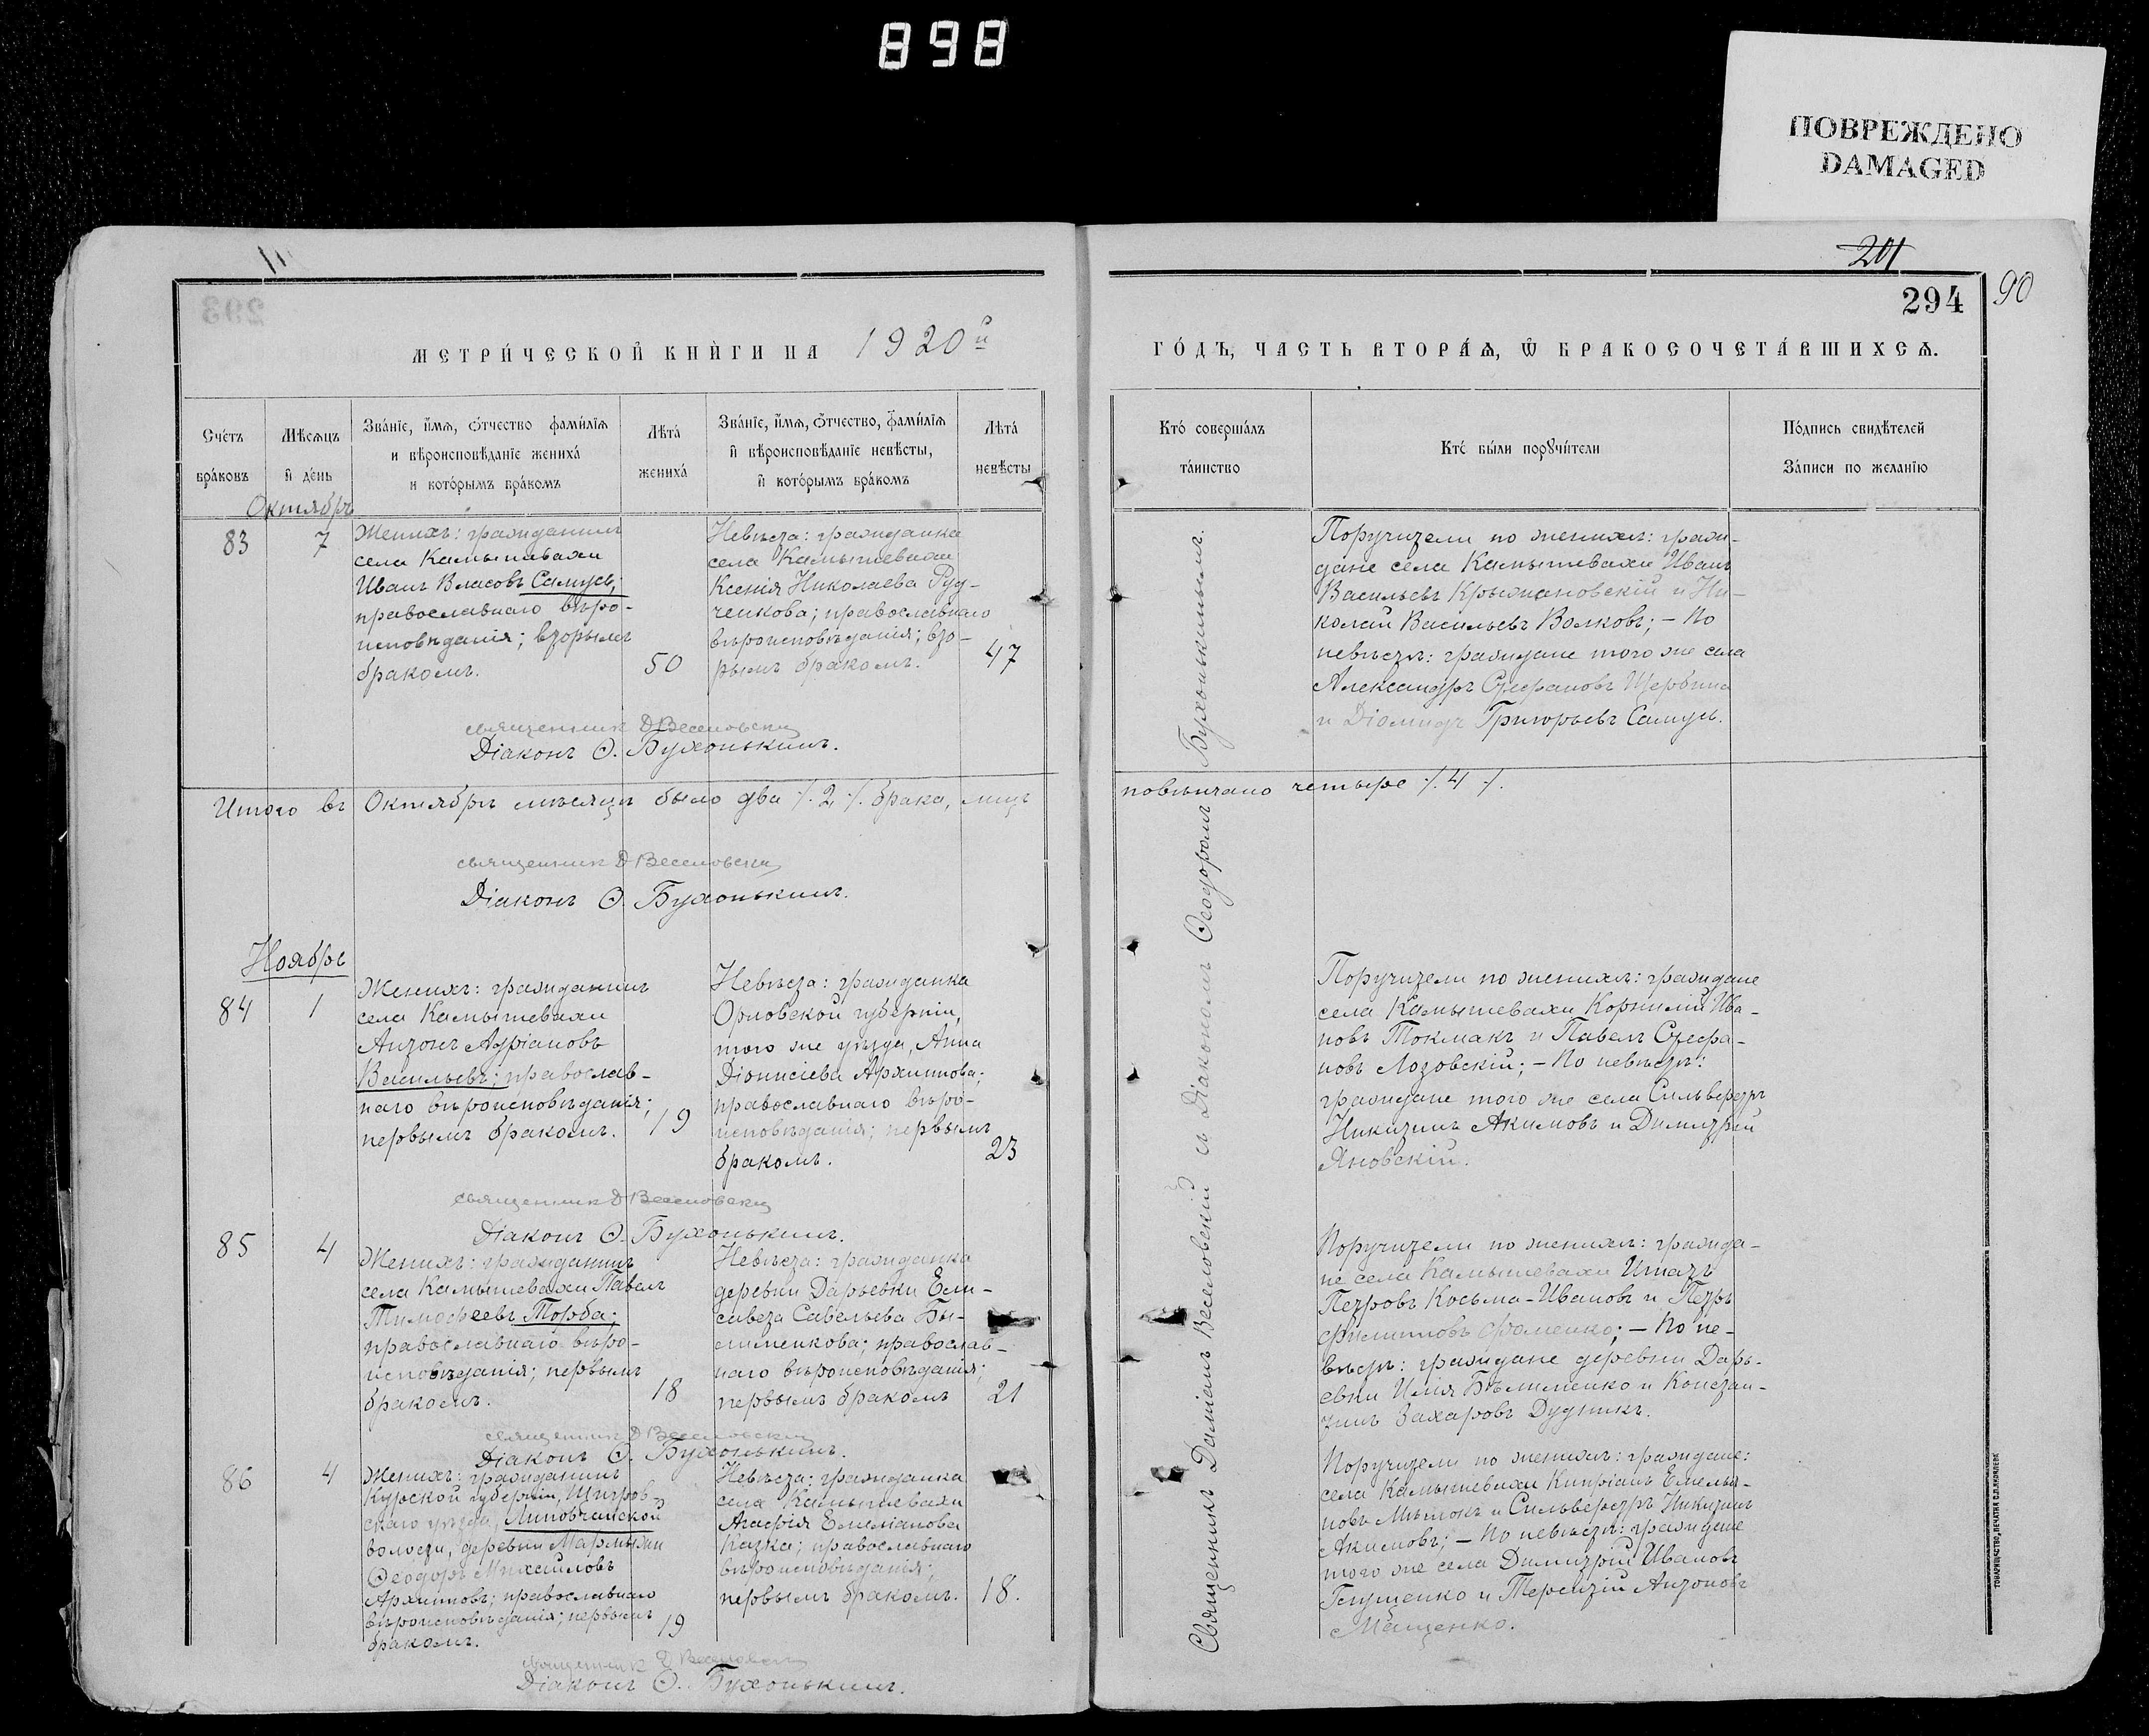 898
ПОВРЕЖДЕНО
DAMAGED
201
294
90
МЕТРИ́ЧЕСКОЙ КНИ́ГИ НА 1920й
ГО́ДЪ, ЧАСТЬ ВТОРА́Ѧ, Ѽ БРАКОСОЧЕТА́ВШИХСѦ.
Сче́тъ
бра́ковъ
Мѣ́сѧцъ
и҆ де́нь
Зва́нїе, и҆́мѧ, ѻ҆́тчество фами́лїѧ
и вѣроисповѣ́данїе жениха́
и кото́рымъ бра́комъ
Лѣта́
жениха́
Зва́нїе, и҆́мѧ, ѻ҆́тчество, фами́лїѧ
и҆ вѣроисповѣ́данїе невѣ́сты,
и҆ кото́рымъ бра́комъ
Лѣта́
невѣ́сты
Кто́ соверша́лъ
та́инство
Кто́ бы́ли порꙋчи́тели
По́дпись свидѣ́телей
За́писи по жела́нїю
Октябрь
83
7
Женихъ: гражданинъ
села Камышевахи
Иванъ Власовъ Самусь;
православнаго вѣро-
исповѣданія; вторымъ
бракомъ.
50
Невѣста: гражданка
села Камышевахи
Ксенія Николаева Руд-
ченкова; православнаго
вѣроисповѣданія; вто-
рымъ бракомъ.
47
Поручители по женихѣ: граж-
дане села Камышевахи Иванъ
Васильевъ Крыжановскій и Ни-
колай Васильевъ Волковъ; – По
невѣстѣ: граждане того же села
Александръ Стефановъ Щербина
и Діомидъ Григорьевъ Самусь.
священник Д Веселовский
Діаконъ Ѳ. Бухонькинъ.
Итого въ Октябрѣ мѣсяцѣ было два ·/. 2 ·/. брака, лицъ
повѣнчано четыре ·/. 4 ·/.
священник Д Веселовский
Діаконъ Ѳ. Бухонькинъ.
Ноябрь
84
1
Женихъ: гражданинъ
села Камышевахи
Антонъ Адріановъ
Васильевъ; православ-
наго вѣроисповѣданія;
первымъ бракомъ.
19
Невѣста: гражданка
Орловской губерніи,
того же уѣзда, Анна
Діонисіева Архипова;
православнаго вѣро-
исповѣданія; первымъ
бракомъ.
23
Поручители по женихѣ: граждане
села Камышевахи Корнилій Ива-
новъ Токмакъ и Павелъ Стефа-
новъ Лозовскій; – По невѣстѣ:
граждане того же села Сильвестръ
Никитинъ Акимовъ и Димитрій
Яновскій.
священник Д Веселовский
Діаконъ Ѳ. Бухонькинъ.
85
4
Женихъ: гражданинъ
села Камышевахи Павелъ
Тимоѳеевъ Торба;
православнаго вѣро-
исповѣданія; первымъ
бракомъ.
18
Невѣста: гражданка
деревни Дарьевки Ели-
савета Савельева Бы-
лименкова; православ-
наго вѣроисповѣданія;
первымъ бракомъ
21
Поручители по женихѣ: гражда-
не села Камышевахи Игнатъ
Петровъ Косьма-Ивановъ и Петръ
Филипповъ Фоменко; – По не-
вѣстѣ: граждане деревни Дарь-
евки Илія Бѣлименко и Констан-
тинъ Захаровъ Дудникъ.
священник Д Веселовский
Діаконъ Ѳ. Бухонькинъ.
86
4
Женихъ: гражданинъ
Курской губерніи, Щигров-
скаго уѣзда, Липовчанской
волости, деревни Мармыжи
Ѳеодоръ Михайловъ
Архиповъ; православнаго
вѣроисповѣданія; первымъ
бракомъ.
19
Невѣста: гражданка
села Камышевахи
Агафія Емеліанова
Казка; православнаго
вѣроисповѣданія;
первымъ бракомъ.
18.
Поручители по женихѣ: граждане:
села Камышевахи Кипріанъ Емелья-
новъ Мѣшокъ и Сильвестръ Никитинъ
Акимовъ; – По невѣстѣ: граждане
того же села Димитрій Ивановъ
Глущенко и Терентій Антоновъ
Мащенко.
священник Д Веселовский
Діаконъ Ѳ. Бухонькинъ.
Священникъ Даміанъ Веселовскій съ Діакономъ Ѳеодоромъ Бухонькинымъ.
ТОВАРИЩЕСТВО „ПЕЧАТНЯ С.П.ЯКОВЛЕВА“